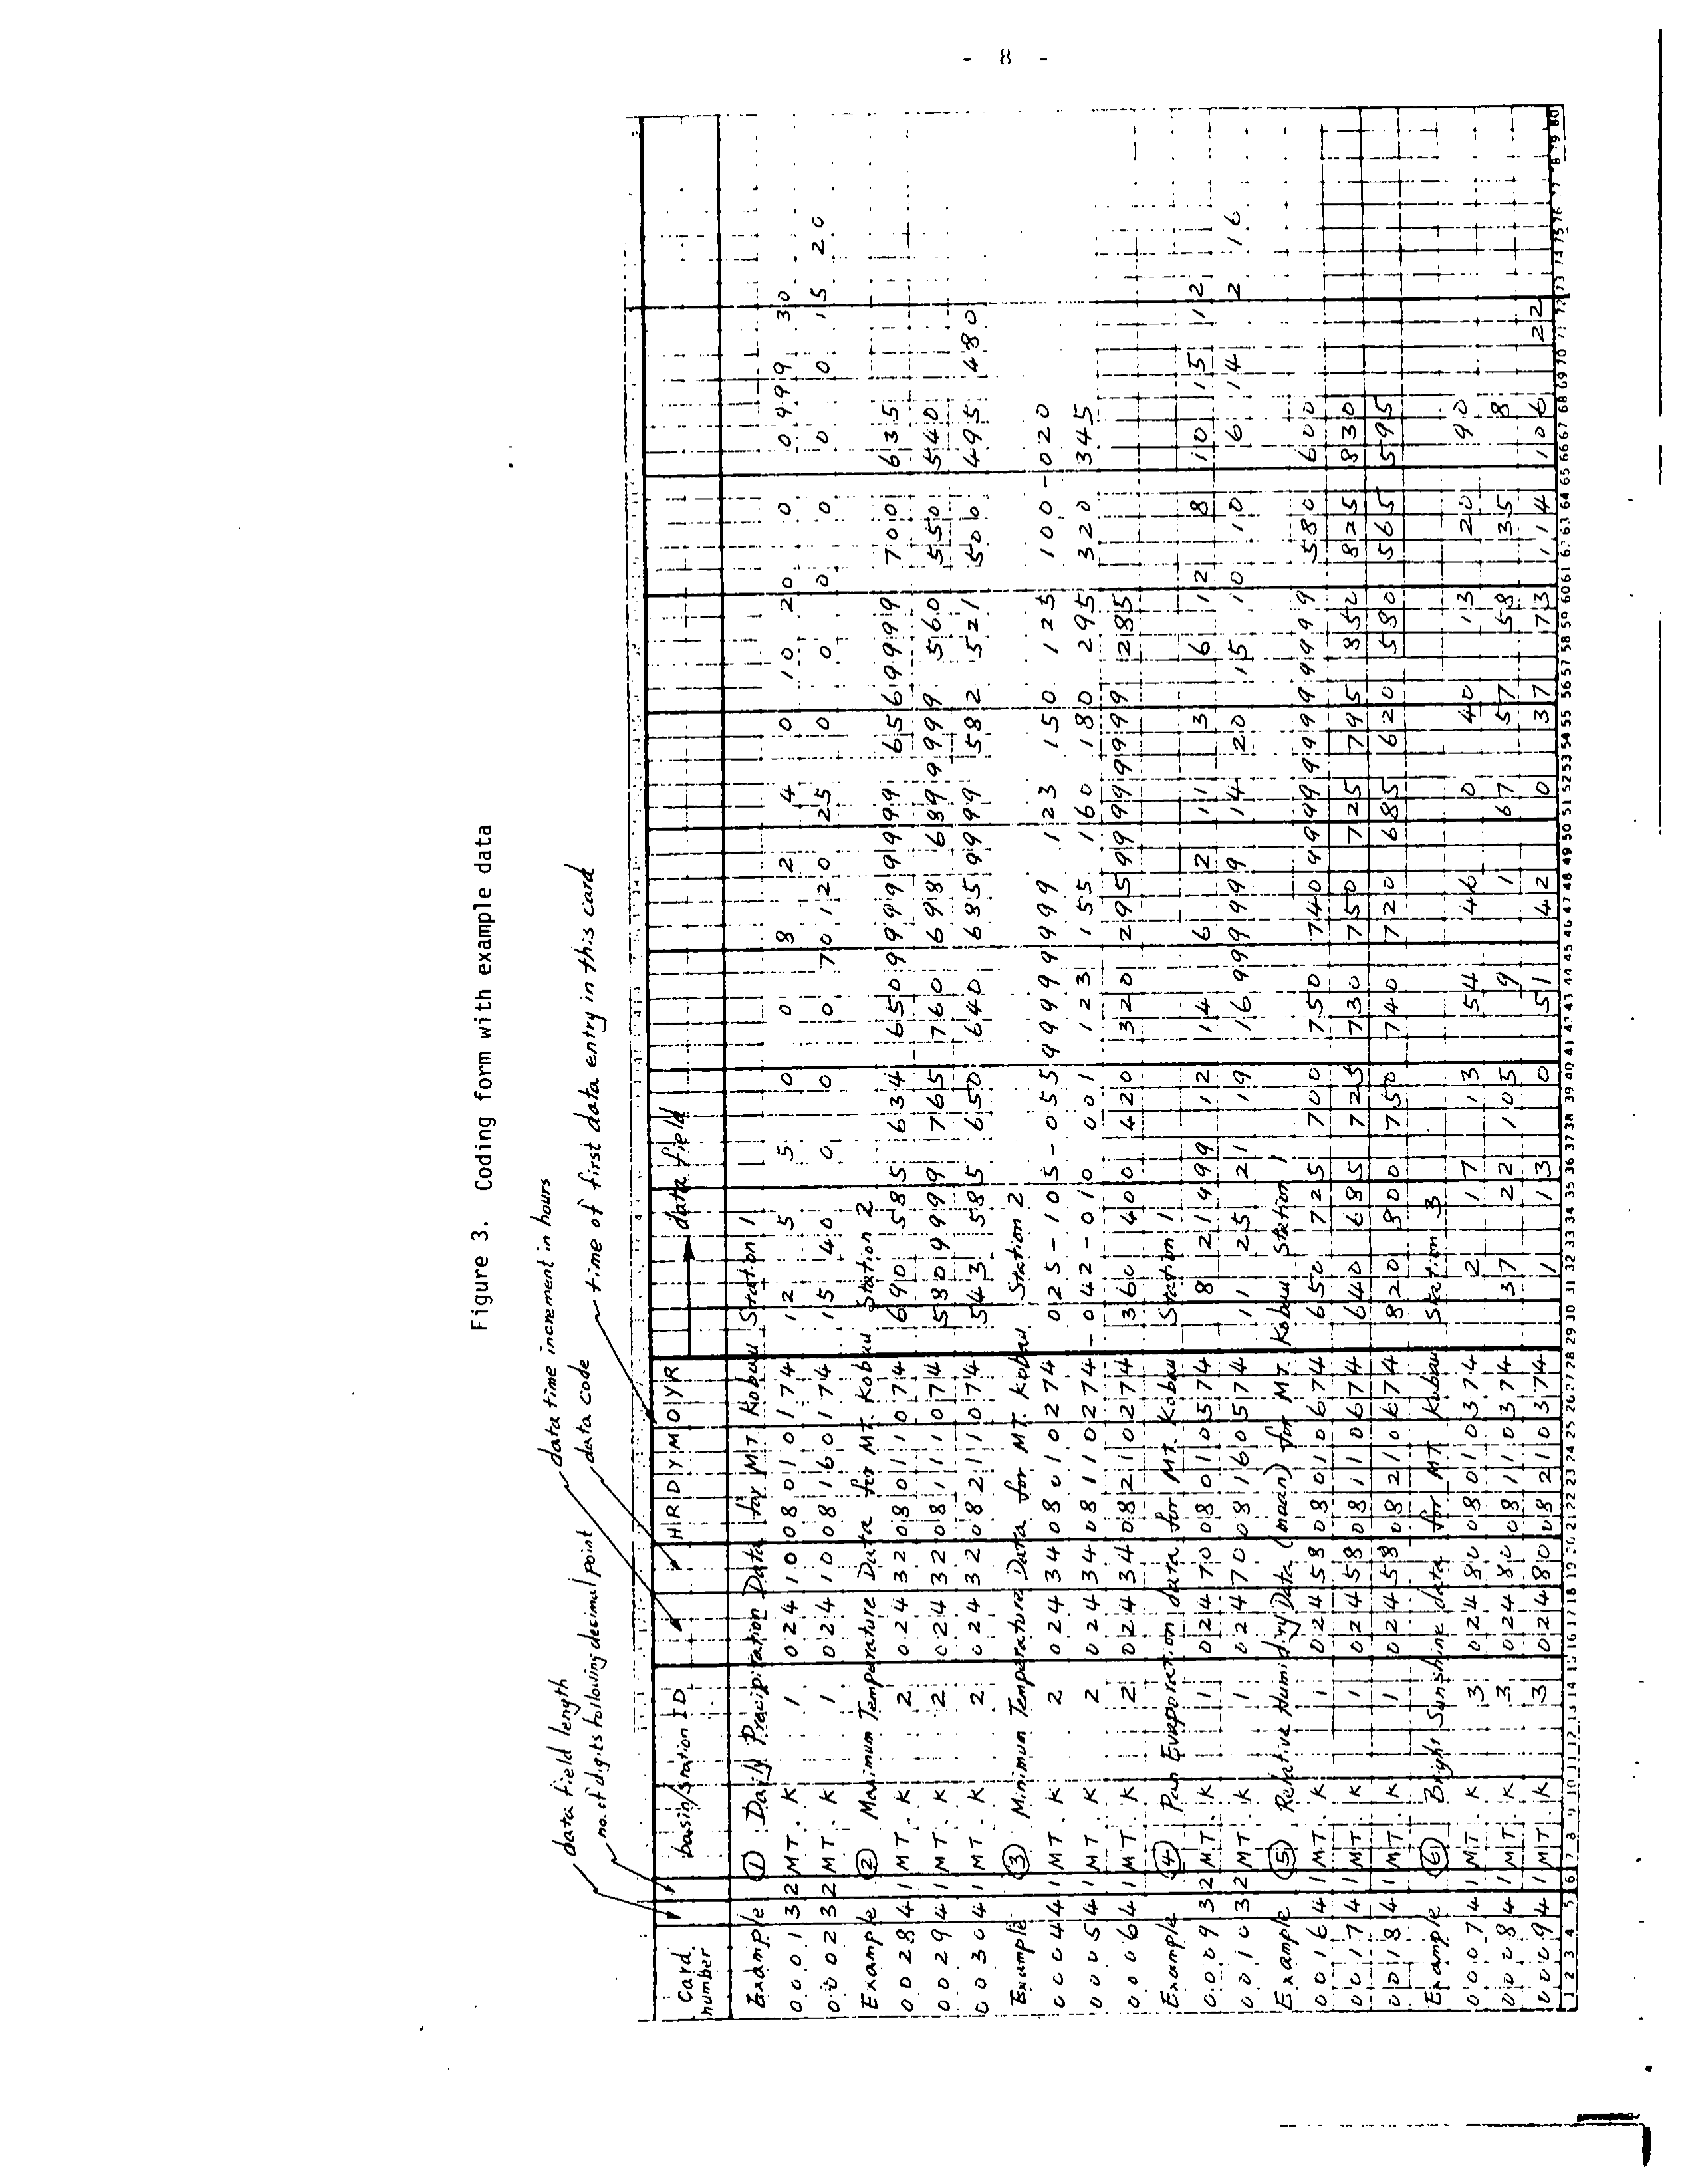 - 8 -
Figure 3. Coding form with example data
data field length
no. of digits following decimal point
data time increment in hours
data code
time of first data entry in this card
Card number basin/station ID H R D Y M O Y R data field
Example ① Daily Precipitation Data for MT. Kobau Station 1
0001 3 2 MT. K 1 024 10 08 01 01 74 12 5 5 0 0 8 2 4 0 10 20 0 0 499 30
0002 3 2 MT. K 1 024 10 08 16 01 74 15 40 0 0 0 70 120 25 0 0 0 0 0 0 15 20
Example ② Maximum Temperature Data for MT. Kobau Station 2
0028 4 1 MT. K 2 024 32 08 01 10 74 690 585 634 650 9999 9999 656 9999 700 635
0029 4 1 MT. K 2 024 32 08 11 10 74 580 9999 765 760 698 689 9999 560 550 540
0030 4 1 MT. K 2 024 32 08 21 10 74 543 585 650 640 685 9999 582 521 500 495 480
Example ③ Minimum Temperature Data for MT. Kobau Station 2
0004 4 1 MT. K 2 024 34 08 01 02 74 025 -105 -055 9999 9999 123 150 125 100 -020
0005 4 1 MT. K 2 024 34 08 11 02 74 -042 -010 001 123 155 160 180 295 320 345
0006 4 1 MT. K 2 024 34 08 21 02 74 360 400 420 320 295 9999 9999 285
Example ④ Pan Evaporation data for MT. Kobau Station 1
0009 3 2 MT. K 1 024 70 08 01 05 74 8 21 499 12 14 6 2 11 3 6 12 8 10 15 12
0010 3 2 MT. K 1 024 70 08 16 05 74 11 25 21 19 16 999 999 14 20 15 10 10 6 14 2 16
Example ⑤ Relative Humidity Data (mean) for MT. Kobau Station 1
0016 4 1 MT. K 1 024 58 08 01 06 74 650 725 700 750 740 9999 9999 9999 580 600
0017 4 1 MT. K 1 024 58 08 11 06 74 640 685 725 730 750 725 795 850 825 830
0018 4 1 MT. K 1 024 58 08 21 06 74 820 800 750 740 720 685 620 580 565 595
Example ⑥ Bright Sunshine data for MT. Kobau Station 3
0007 4 1 MT. K 3 024 80 08 01 03 74 2 17 13 54 46 0 40 13 20 90
0008 4 1 MT. K 3 024 80 08 11 03 74 37 22 105 9 1 67 57 58 35 8
0009 4 1 MT. K 3 024 80 08 21 03 74 1 13 0 51 42 0 37 73 114 106 22
1 2 3 4 5 6 7 8 9 10 11 12 13 14 15 16 17 18 19 20 21 22 23 24 25 26 27 28 29 30 31 32 33 34 35 36 37 38 39 40 41 42 43 44 45 46 47 48 49 50 51 52 53 54 55 56 57 58 59 60 61 62 63 64 65 66 67 68 69 70 71 72 73 74 75 76 77 78 79 80